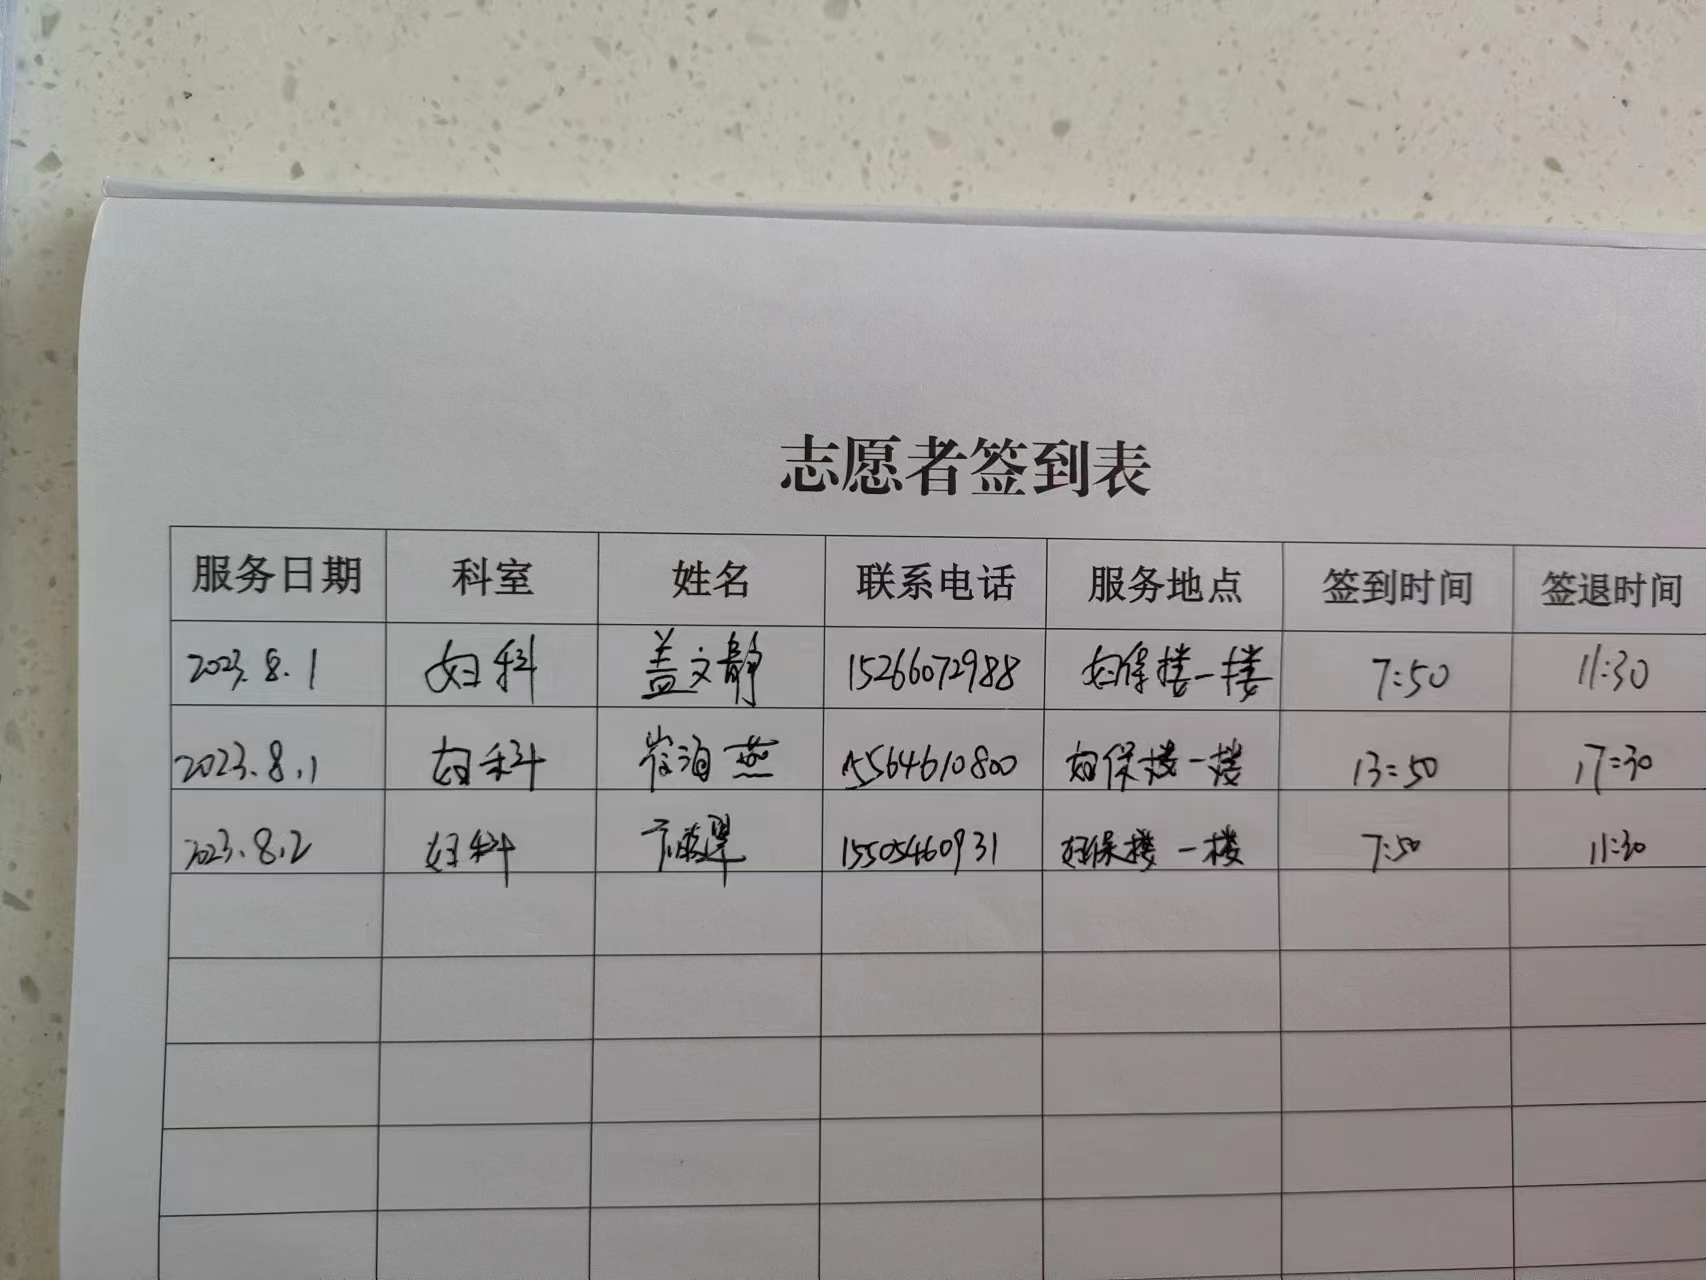 志愿者签到表
服务日期 科室 姓名 联系电话 服务地点 签到时间 签退时间
2023.8.1 妇科 盖文静 15266072988 妇保楼一楼 7:50 11:30
2023.8.1 妇科 崔海燕 15564610800 妇保楼一楼 13:50 17:30
2023.8.2 妇科 15505460931 妇保楼一楼 7:50 11:30